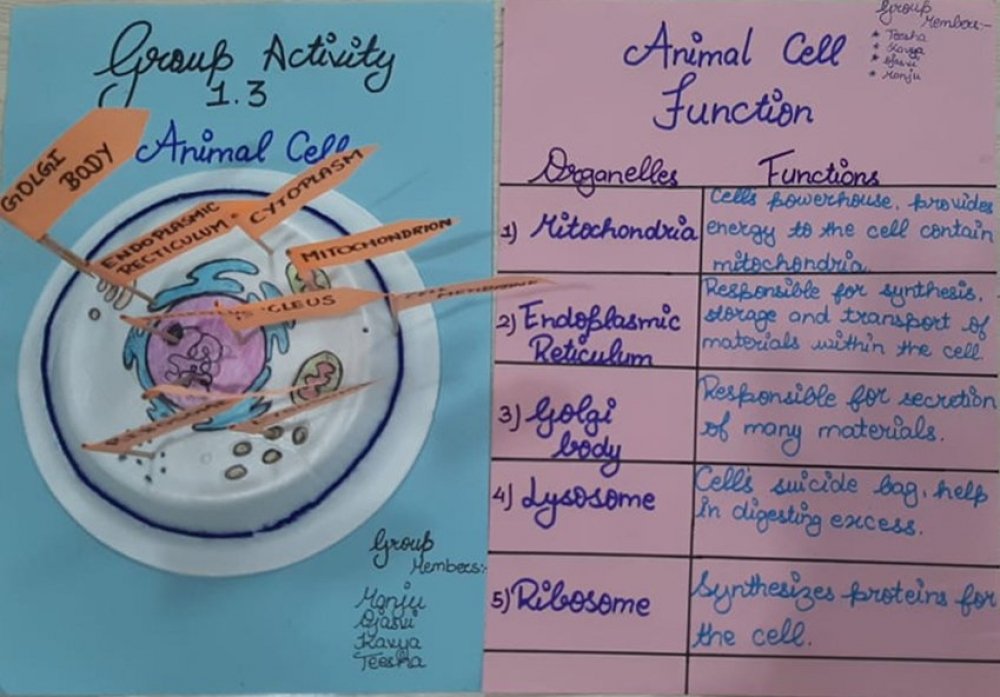 Group Activity
1.3
Animal Cell
GOLGI
BODY
ENDOPLASMIC
RECTICULUM
CYTOPLASM
MITOCHONDRION
Group
Members:-
Manju
Ojasvi
Kavya
Teesha
Group
Members:-
* Teesha
* Kavya
* Ojasvi
* Manju
Animal Cell
Function
Organelles Functions
1) Mitochondria
Cells powerhouse, provides
energy to the cell contain
mitochondria.
2) Endoplasmic
Reticulum
Responsible for synthesis,
storage and transport of
materials within the cell.
3) Golgi
body
Responsible for secretion
of many materials.
4) Lysosome
Cell's suicide bag, help
in digesting excess.
5) Ribosome
Synthesizes proteins for
the cell.